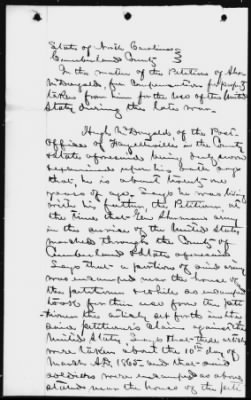 State of North Carolina
Cumberland County
In the matter of the Petition of
McDougald, for Compensation for property
taken from him for the use of the United
States during the late war.
Hugh McDougald of the Post
Office of Fayetteville in the County
& State aforesaid being duly sworn
after his oath says
that, he is about twenty one
years of age. Says he was living
with his father, the Petitioner, at
the time that Gen Shermans army
in the service of the United States
marched through the County of
Cumberland & State aforesaid
Says that a portion of said army
was encamped near the house of
the petitioner & while so encamped
took for their use from the peti-
tioner the articles set forth in the
said petitioner's claim against the
United States. Says that these articles
were taken about the 10th day of
March A.D. 1865 and that said
soldiers were encamped as above
stated near the house of the peti-